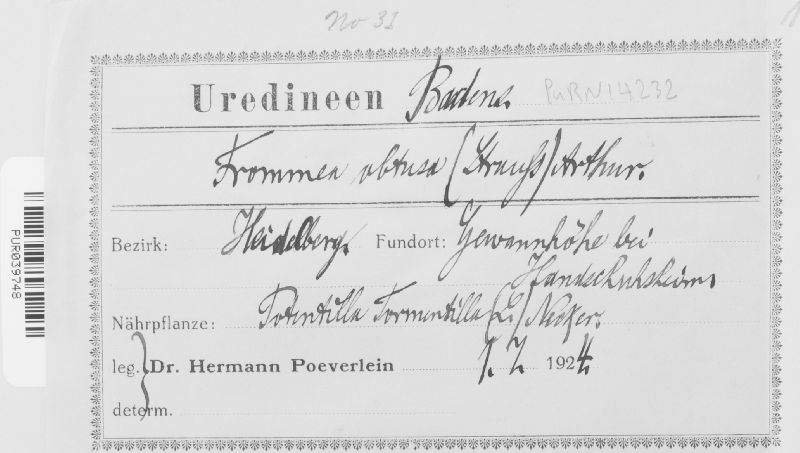 No 31
Uredineen Badens. PURN14232
Frommea obtusa (Strauss) Arthur.
Bezirk: Heidelberg. Fundort: Gewannhöhe bei
Handschuhsheim
Nährpflanze: Potentilla Tormentilla (L.) Necker.
leg. Dr. Hermann Poeverlein 1. 7. 1924
determ.
PUR039748